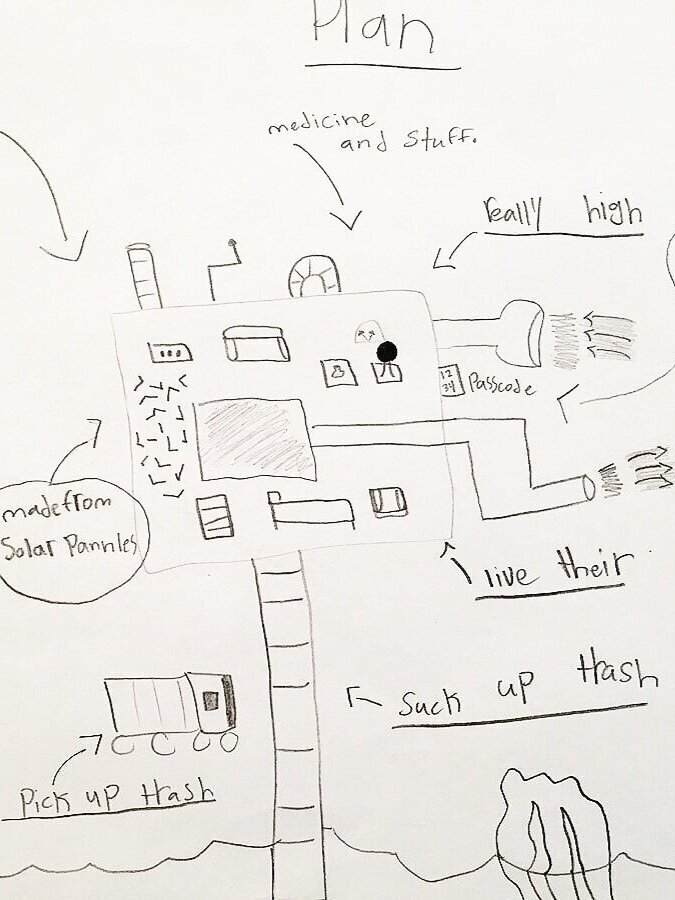 Plan
medicine
and stuff.
really high
12
34
Passcode
made from
Solar Pannles
live their
Suck up trash
Pick up trash